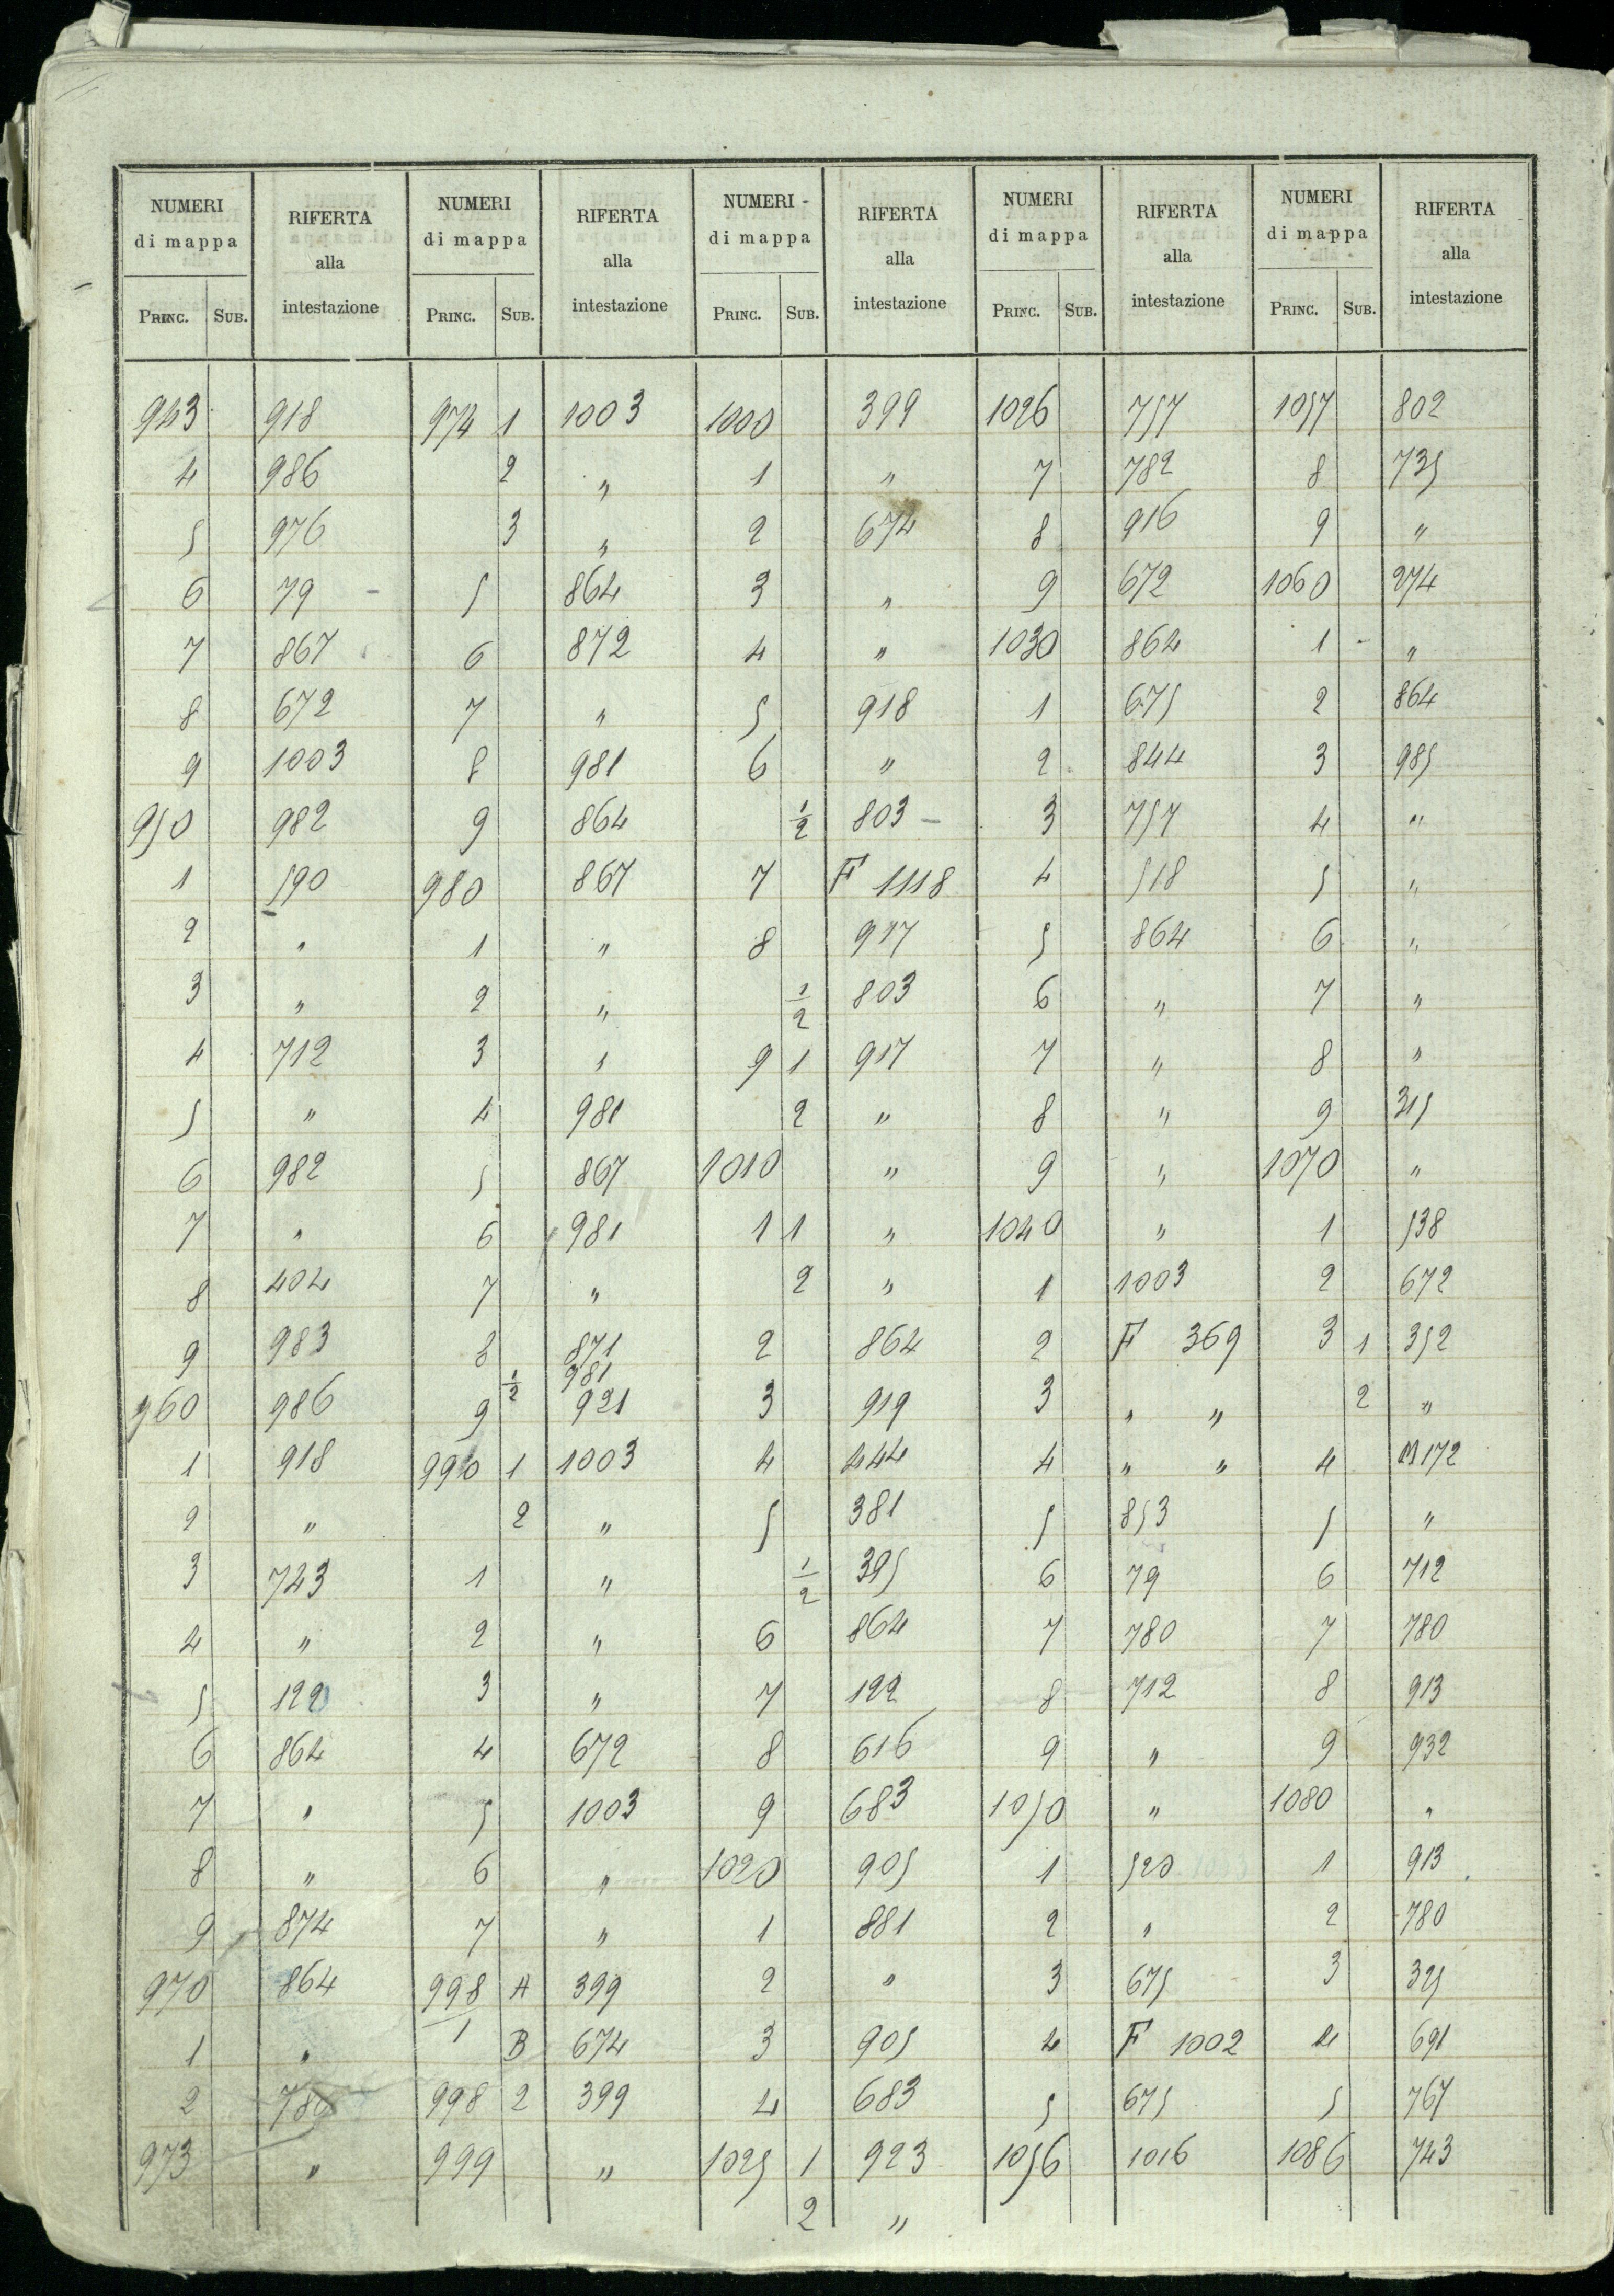 NUMERI di mappa RIFERTA alla intestazione NUMERI di mappa RIFERTA alla intestazione NUMERI di mappa RIFERTA alla intestazione NUMERI di mappa RIFERTA alla intestazione NUMERI di mappa RIFERTA alla intestazione
PRINC. SUB. PRINC. SUB. PRINC. SUB. PRINC. SUB. PRINC. SUB.
943 918 974 1 1003 1000 399 1026 757 1057 802
4 986 2 " 1 " 7 782 8 735
5 976 3 " 2 674 8 916 9 "
6 79 5 864 3 " 9 672 1060 274
7 867 6 872 4 " 1030 864 1 "
8 672 7 " 5 918 1 675 2 864
9 1003 8 981 6 " 2 844 3 985
950 982 9 864 1/2 803 3 757 4 "
1 590 980 867 7 F 1118 4 518 5 "
2 " 1 " 8 917 5 864 6 "
3 " 2 " 1/2 803 6 " 7 "
4 712 3 " 9 1 917 7 " 8 "
5 " 4 981 2 " 8 " 9 315
6 982 5 867 1010 " 9 " 1070 "
7 " 6 981 1 1 " 1040 " 1 538
8 404 7 " 2 " 1 1003 2 672
9 983 8 871 2 864 2 F 369 3 1 352
1/2 981
960 986 9 921 3 919 3 " " 2 "
1 918 990 1 1003 4 444 4 " " 4 M172
2 " 2 " 5 381 5 853 5 "
3 743 1 " 1/2 395 6 79 6 712
4 " 2 " 6 864 7 780 7 780
5 122 3 " 7 122 8 712 8 913
6 864 4 672 8 616 9 " 9 932
7 " 5 1003 9 683 1050 " 1080 "
8 " 6 " 1020 905 1 520 1 913
9 874 7 " 1 881 2 " 2 780
970 864 998 A 399 2 " 3 675 3 325
1 " 1 B 674 3 905 4 F 1002 4 691
2 780 998 2 399 4 683 5 675 5 767
973 " 999 " 1025 1 923 1056 1016 1086 743
2 "